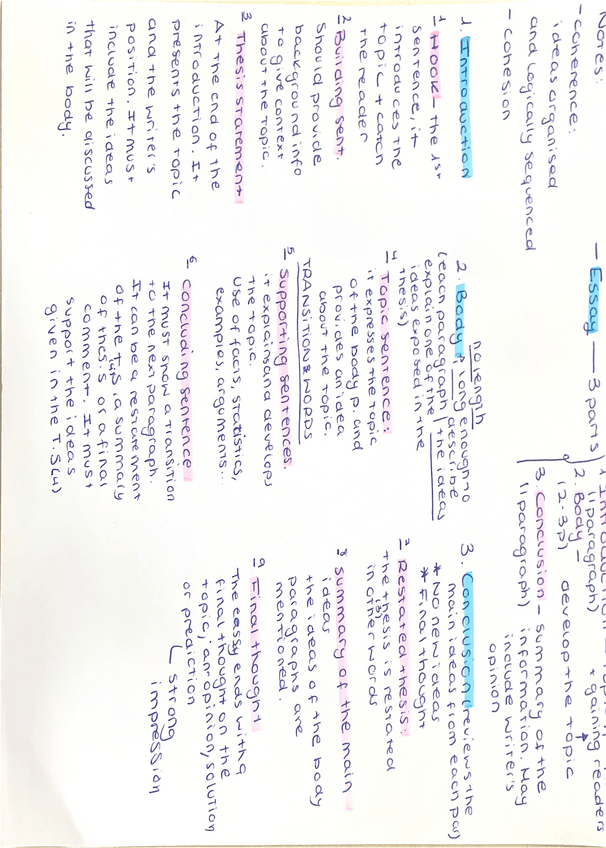 Notes:
- coherence:
ideas organised
and logically sequenced
- cohesion
— Essay — 3 parts
(1 paragraph) + gaining readers
2. Body — develop the topic
(2-3p)
3. Conclusion - summary of the
(1 paragraph) information. May
include writer's
opinion
1. Introduction
1 Hook - the 1st
sentence, it
introduces the
topic + catch
the reader
2 Building sent.
Should provide
background info
to give context
about the topic.
3 Thesis statement
At the end of the
introduction. It
presents the topic
and the writer's
position. It must
include the ideas
that will be discussed
in the body.
no length
2. Body * long enough to
(each paragraph describe
explain one of the the ideas
ideas exposed in the
thesis)
4 Topic sentence:
it expresses the topic
of the body p. and
provides an idea
about the topic.
TRANSITIONS WORDS
5 Supporting sentences.
it explains and develops
the topic.
Use of facts, statistics,
examples, arguments...
6 Concluding sentence
It must show a transition
to the next paragraph.
It can be a restatement
of the T.S(4), a summary
of thesis or a final
comment. It must
support the ideas
given in the T.S(4)
3. Conclusion (reviews the
main ideas from each par)
* No new ideas
* Final thought
7 Restated thesis:
the thesis (3) is restated
in other words
8 Summary of the main
ideas
the ideas of the body
paragraphs are
mentioned.
9 Final thought
The eassy ends with a
final thought on the
topic; an opinion, solution
or prediction
strong
impression